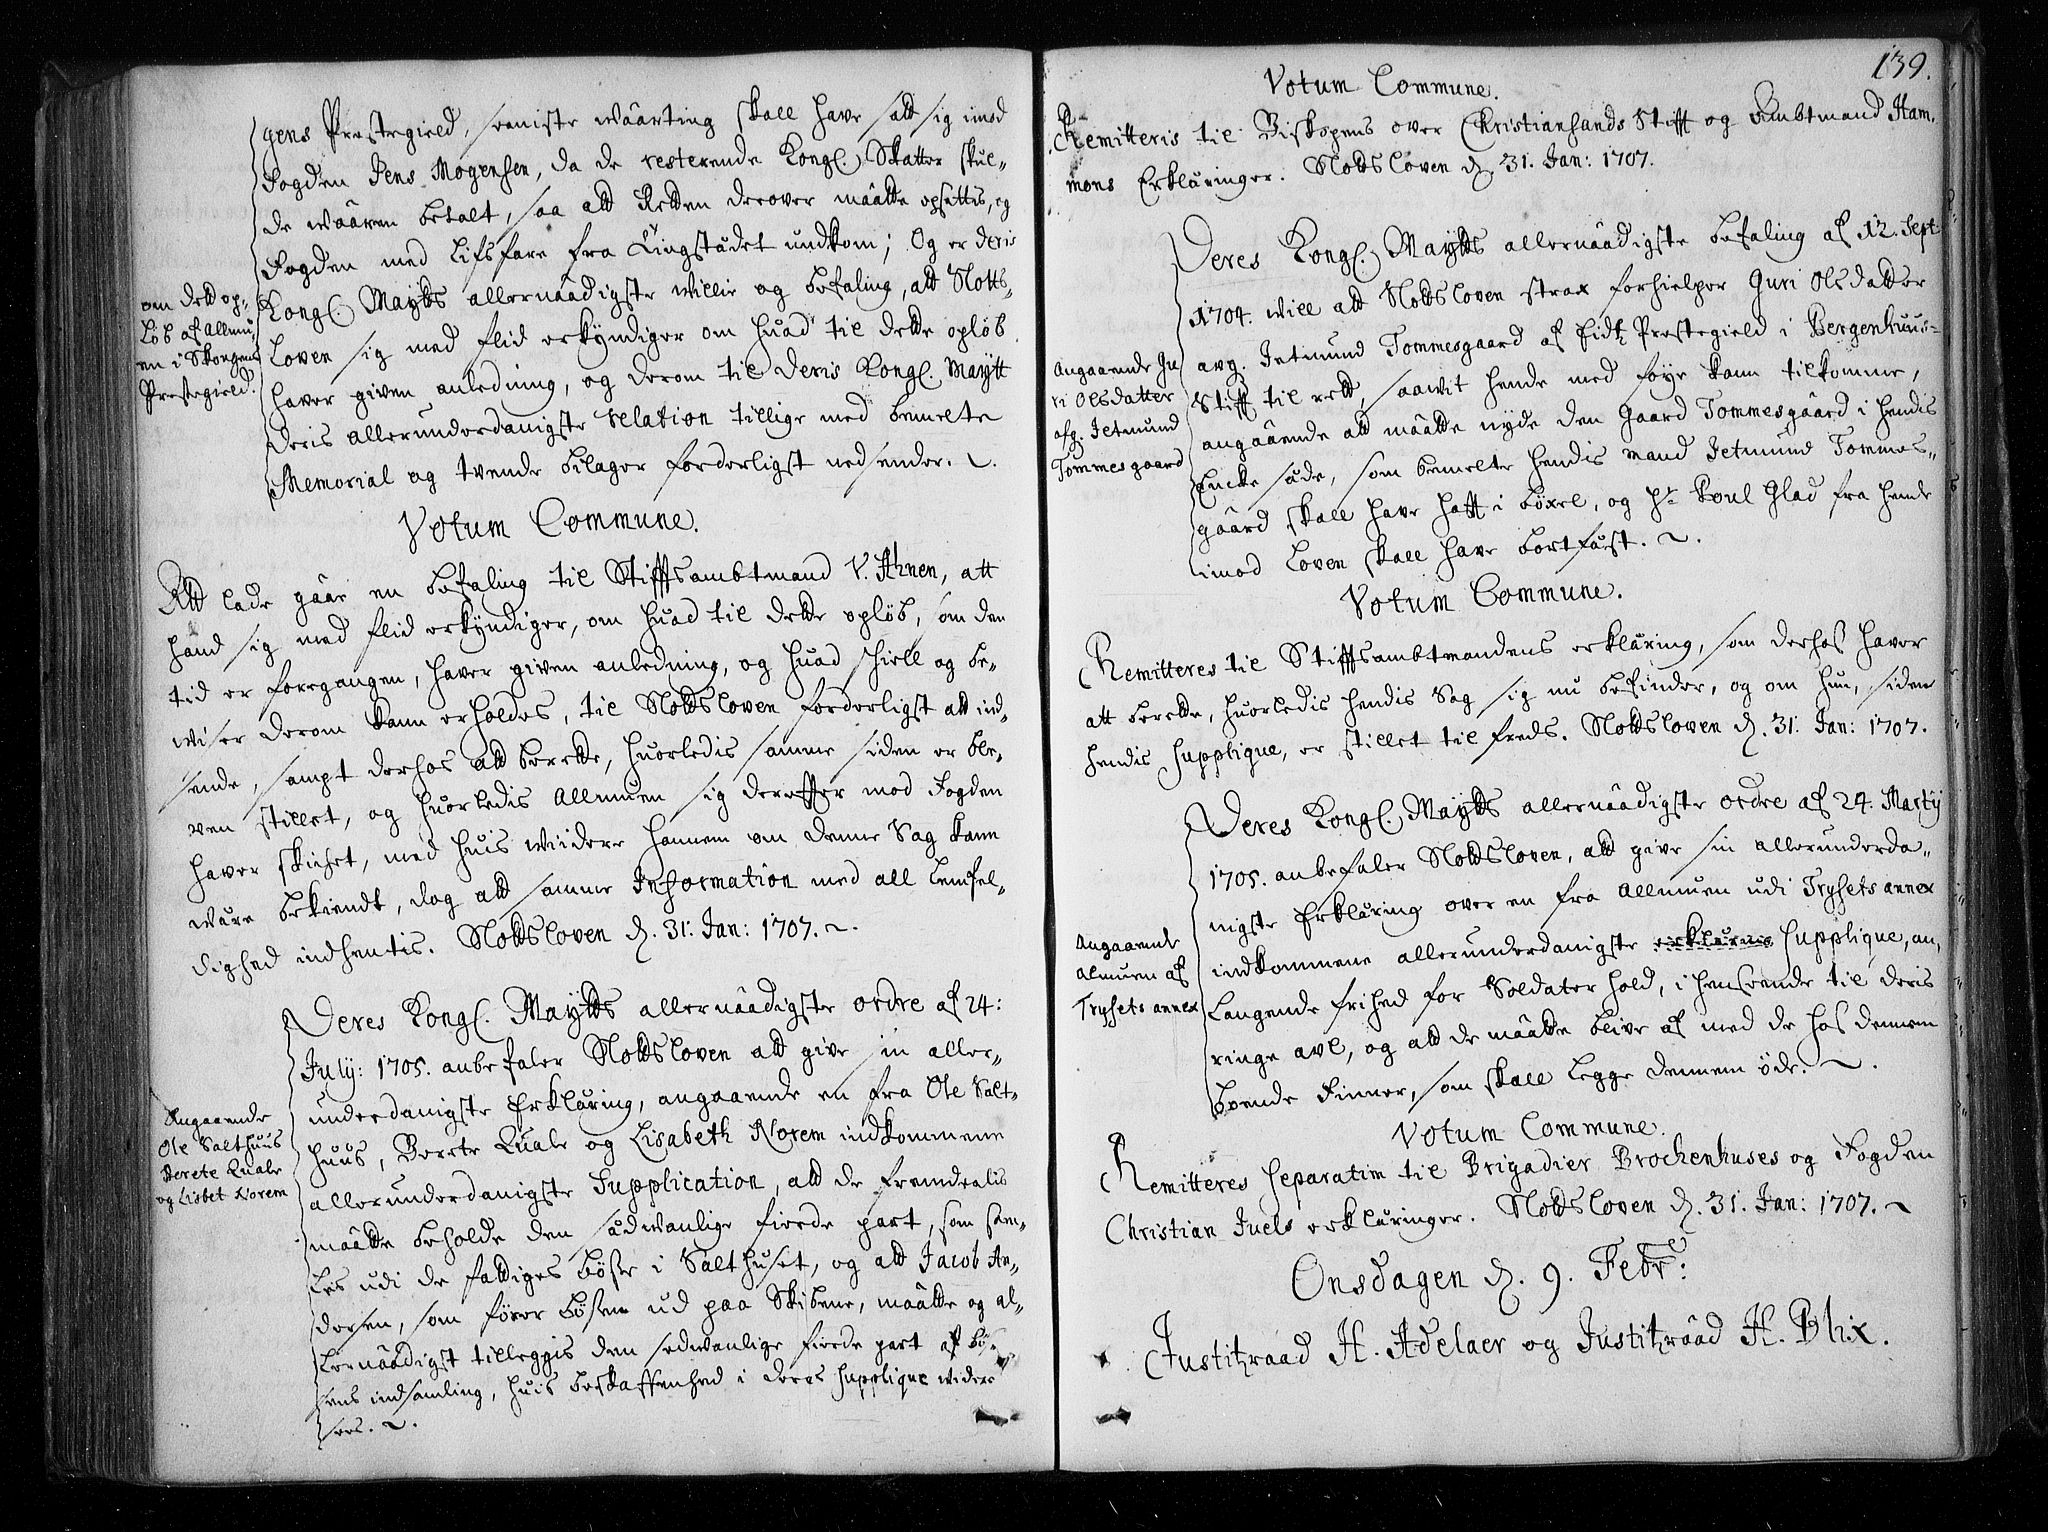 gens Præstegield, seeniste Waarting skall have satt sig imod
Fogden Jens Mogensen, da de resterende Kongl. Skatter skul-
de wæren betalt, saa att Retten derover maatte opsettis, og
Fogden med Lifsfare fra Tingstædet undkom; Og er deris
Kongl. Maytts allernaadigste willie og befaling, att Slotts-
Loven sig med flid erkyndiger om huad til dette opløb
haver given anledning, og derom til Deris Kongl. Maytt
deris allerunderdanigste relation tillige med bemelte
Memorial og tvende bilager forderligst nedsender.
om dett op-
løb af Allmu-
en i Skongens
Præstegield.
Votum Commune.
Att lade gaae en befaling til Stifftsambtmand V. Ahnen, att
hand sig med flid erkyndiger, om huad til dette opløb, som den
tid er foregangen, haver given anledning, og huad skiell og be-
wiser derom kann erholdes, til Slottsloven forderligst att ind-
sende, sampt derhos att berette, huorledis samme siden er ble-
ven stillet, og huorledis Allmuen sig dereffter mod Fogden
haver skicket, med huis widere hannem om denne Sag kann
være bekiendt, dog att samme Information med all Lemfel-
dighed indhentis. Slottsloven d. 31. Jan: 1707.
Deres Kongl. Maytts allernaadigste ordre af 24:
July: 1705. anbefaler Slottsloven att give sin aller-
underdanigste Erklæring, angaaende en fra Ole Salt-
huus, Berete Quale og Lisabeth Norem indkommene
allerunderdanigste Supplication, att de fremdealis
maatte beholde den sædwanlige fierde part, som sam-
les udi de fattiges bøsse i Salthuset, og att Jacob An-
dersen, som fører bøssene ud paa Skibene, maatte og al-
lernaadigst tilleggis den sedwanlige fierde part af bøs-
sens indsamling, huis beskaffenhed i deres supplique widere
sees.
Angaaende
Ole Salthuus
Berete Quale
og Lisbet Norem
139.
Votum Commune.
Remitteris til Biskopens over Christiansands Stifft og Ambtmand Ham-
mons Erklæringer. Slottsloven d. 31. Jan: 1707.
Deres Kongl. Maytts allernaadigste befaling af 12. Sept:
1704. will att Slottsloven strax forhielper Guri Olsdatter
avg. Jetmund Tommesgaard af Eidtz Præstegield i Bergenhuus-
Stifft til rett, saawit hende med føye kann tilkomme,
angaaende att maatte nyde den Gaard Tommesgaard i hendis
Encke sæde, som bemelte hendis mand Jetmund Tommes-
gaard skall have hafft i bøxel, og Hr. Poul Glad fra hende
imod Loven skall have bortfæst.
Angaaende Gu
ri Olsdatter
afg. Jetmund
Tommesgaard
Votum Commune.
Remitteres til Stifftsambtmandens erklæring, som derhos haver
att berette, huorledis hendis Sag sig nu befinder, og om hun, siden
hendis supplique, er stillet til freds. Slottsloven d. 31. Jan: 1707.
Deres Kongl. Maytts allernaadigste ordre af 24. Marty
1705. anbefaler Slottsloven, att give sin allerunderda-
nigste Erklæring over en fra Allmuen udi Trysets annex
indkommene allerunderdanigste erklæring supplique, an-
langende frihed for Soldater hold, i henseende til deris
ringe avl, og att de maatte blive af med de hos dennem
boende Finner, som skall legge dennem øde.
Angaaende
Almuen af
Trysets annex
Votum Commune.
Remitteres separatim til Brigadier Brochenhuses og Fogden
Christian Juels erklæringer. Slottsloven d. 31. Jan: 1707.
Onsdagen d. 9. Febr:
Justitzraad H. Adelaer og Justitzraad H. Blix.